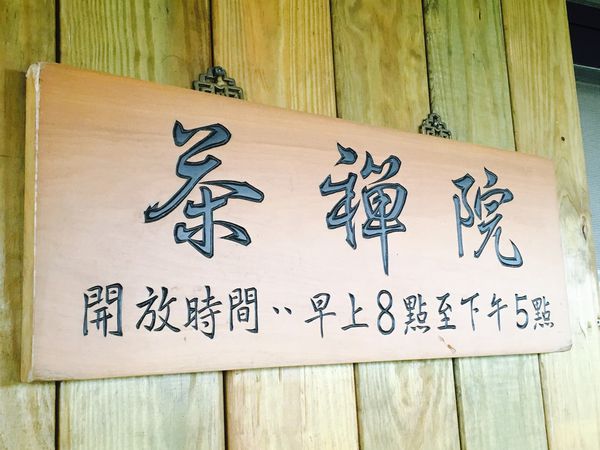 茶禪院
開放時間：早上8點至下午5點